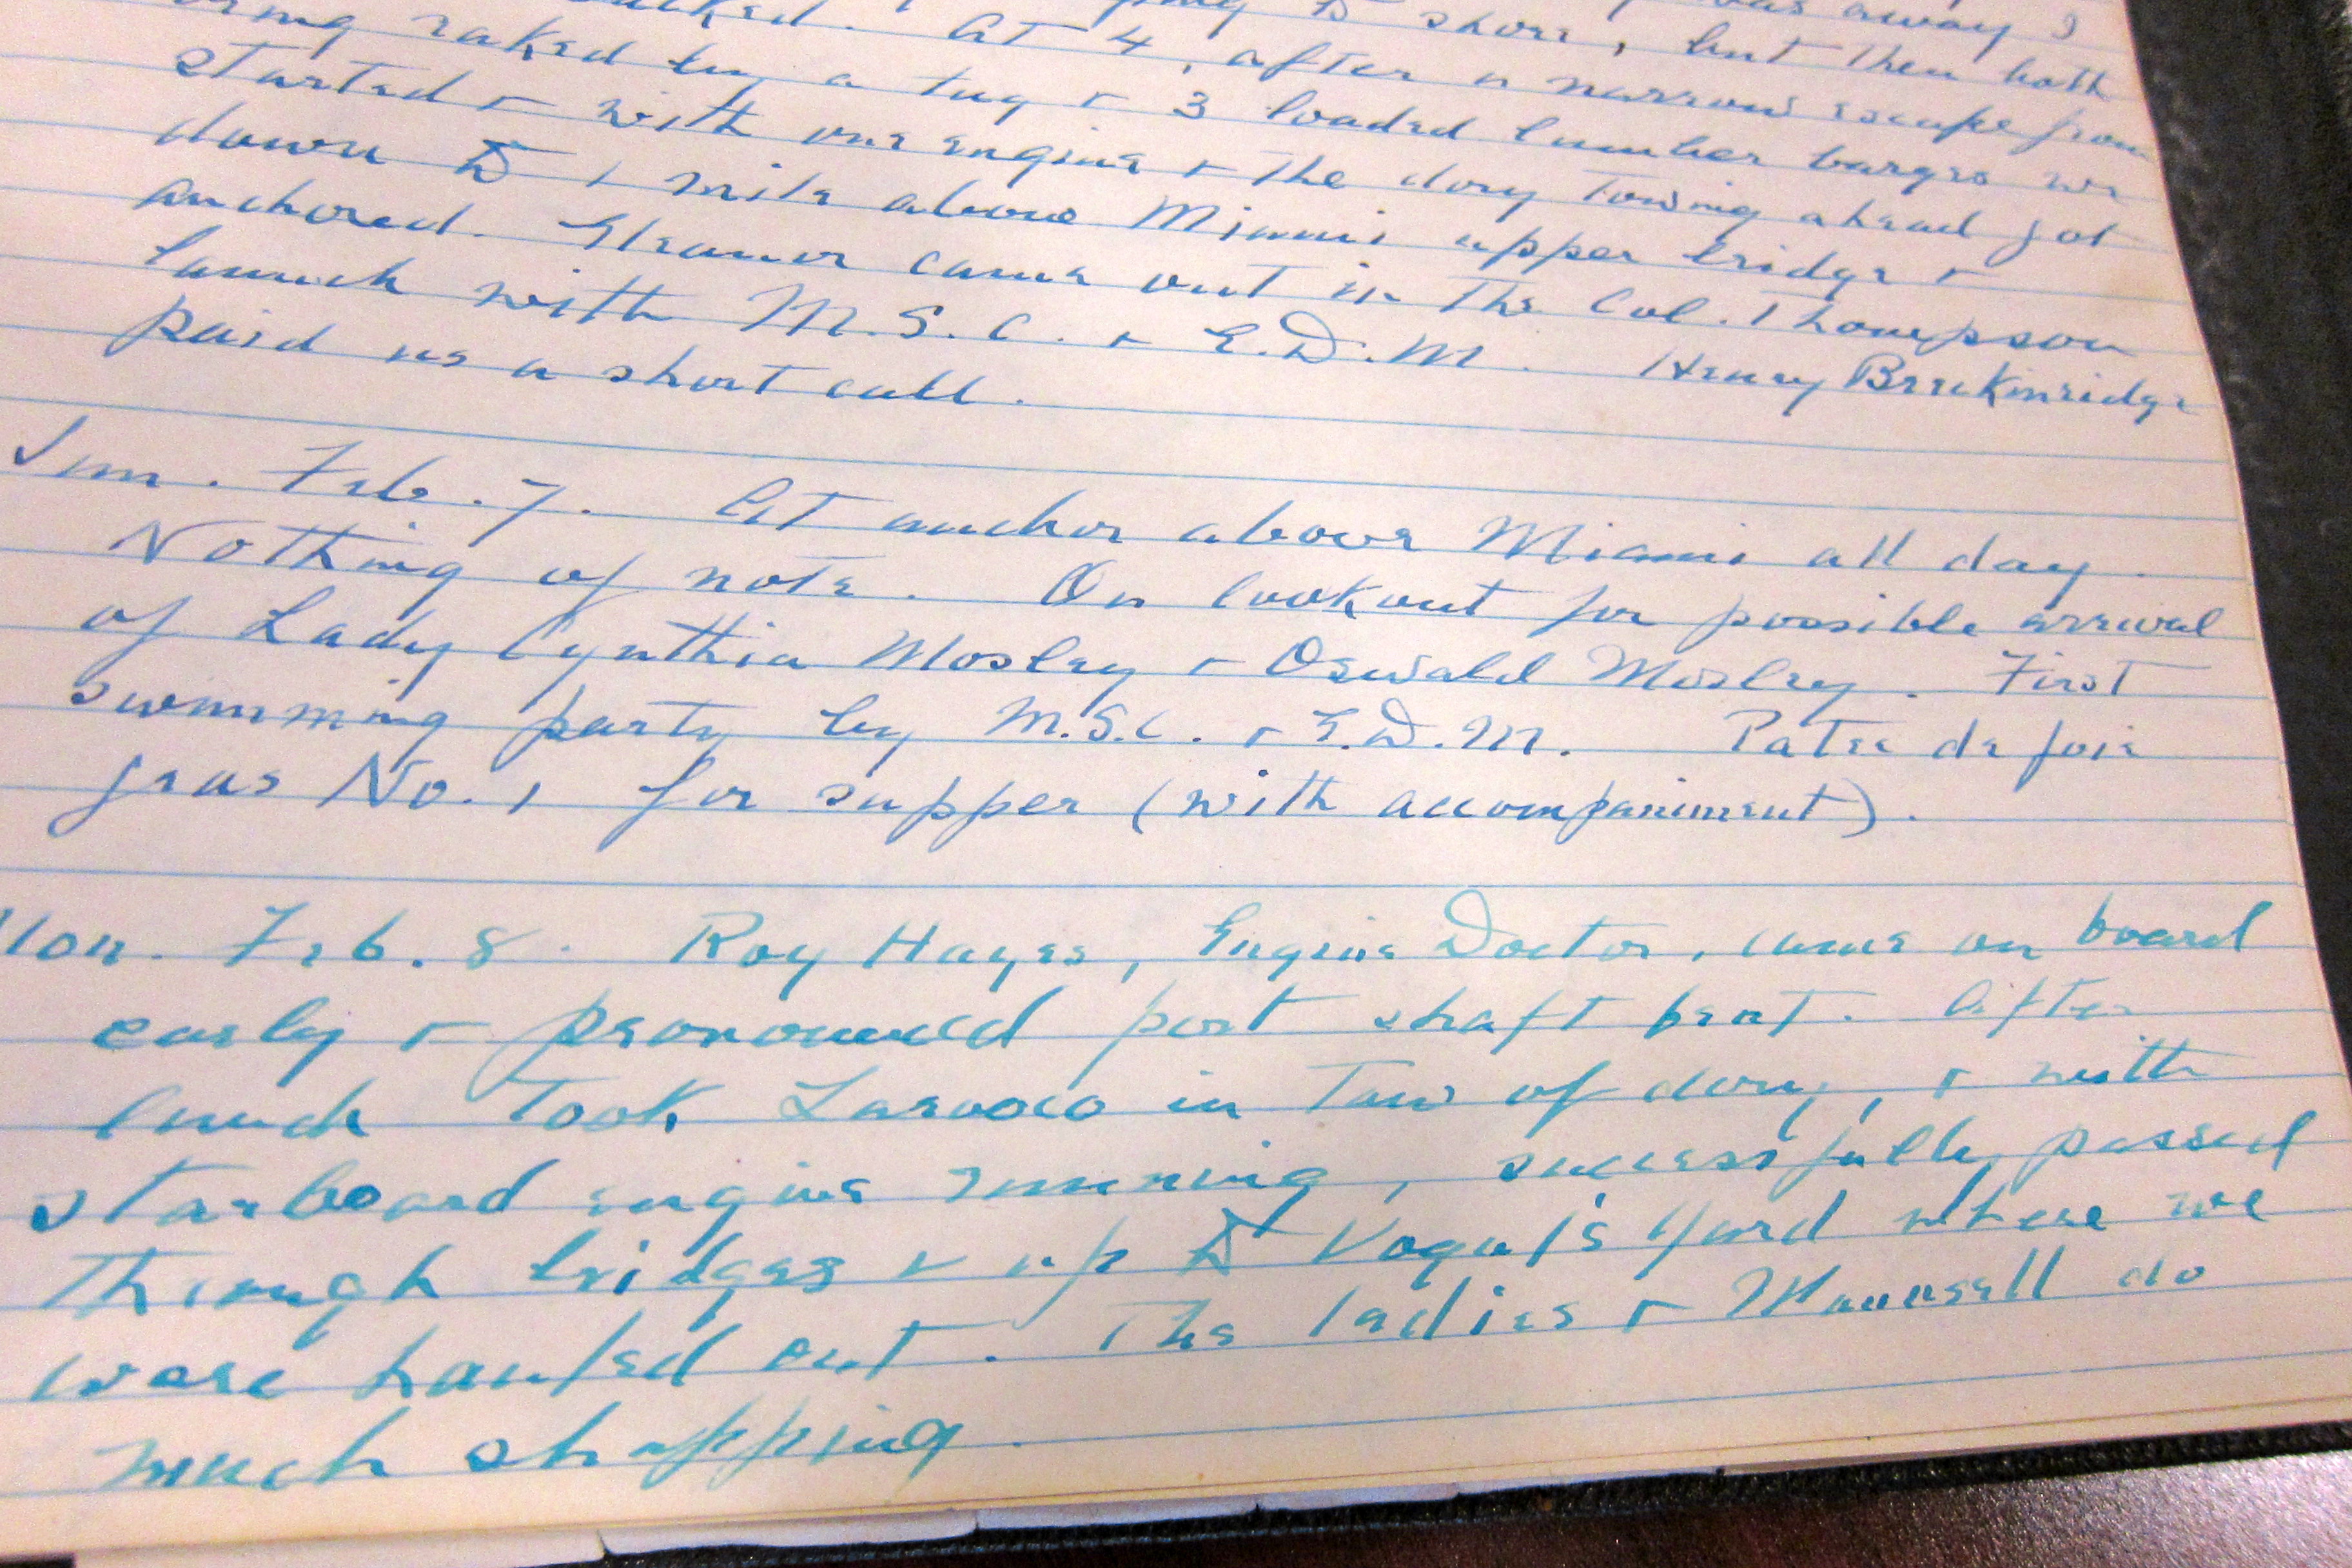 was away &
to shore, but then both
backed. At 4, after a narrow escape from
being raked by a tug & 3 loaded lumber barges we
started & with one engine & the dory towing ahead got
down to 1 mile above Miami upper bridge &
anchored. Eleanor came out in the Col. Thompson
launch with M.S.C. & E.D.M. Henry Breckinridge
paid us a short call.
Sun. Feb. 7. At anchor above Miami all day.
Nothing of note. On lookout for possible arrival
of Lady Cynthia Mosley & Oswald Mosley. First
swimming party by M.S.C. & E.D.M. Patee de foie
gras No. 1 for supper (with accompaniment).
Mon. Feb. 8. Roy Hayes, Engine Doctor, came on board
early & pronounced port shaft bent. After
lunch took Larooco in tow of dory, & with
starboard engine running, successfully passed
through bridges & up to Vogel's Yard where we
were hauled out. The ladies & Maunsell do
much shopping.